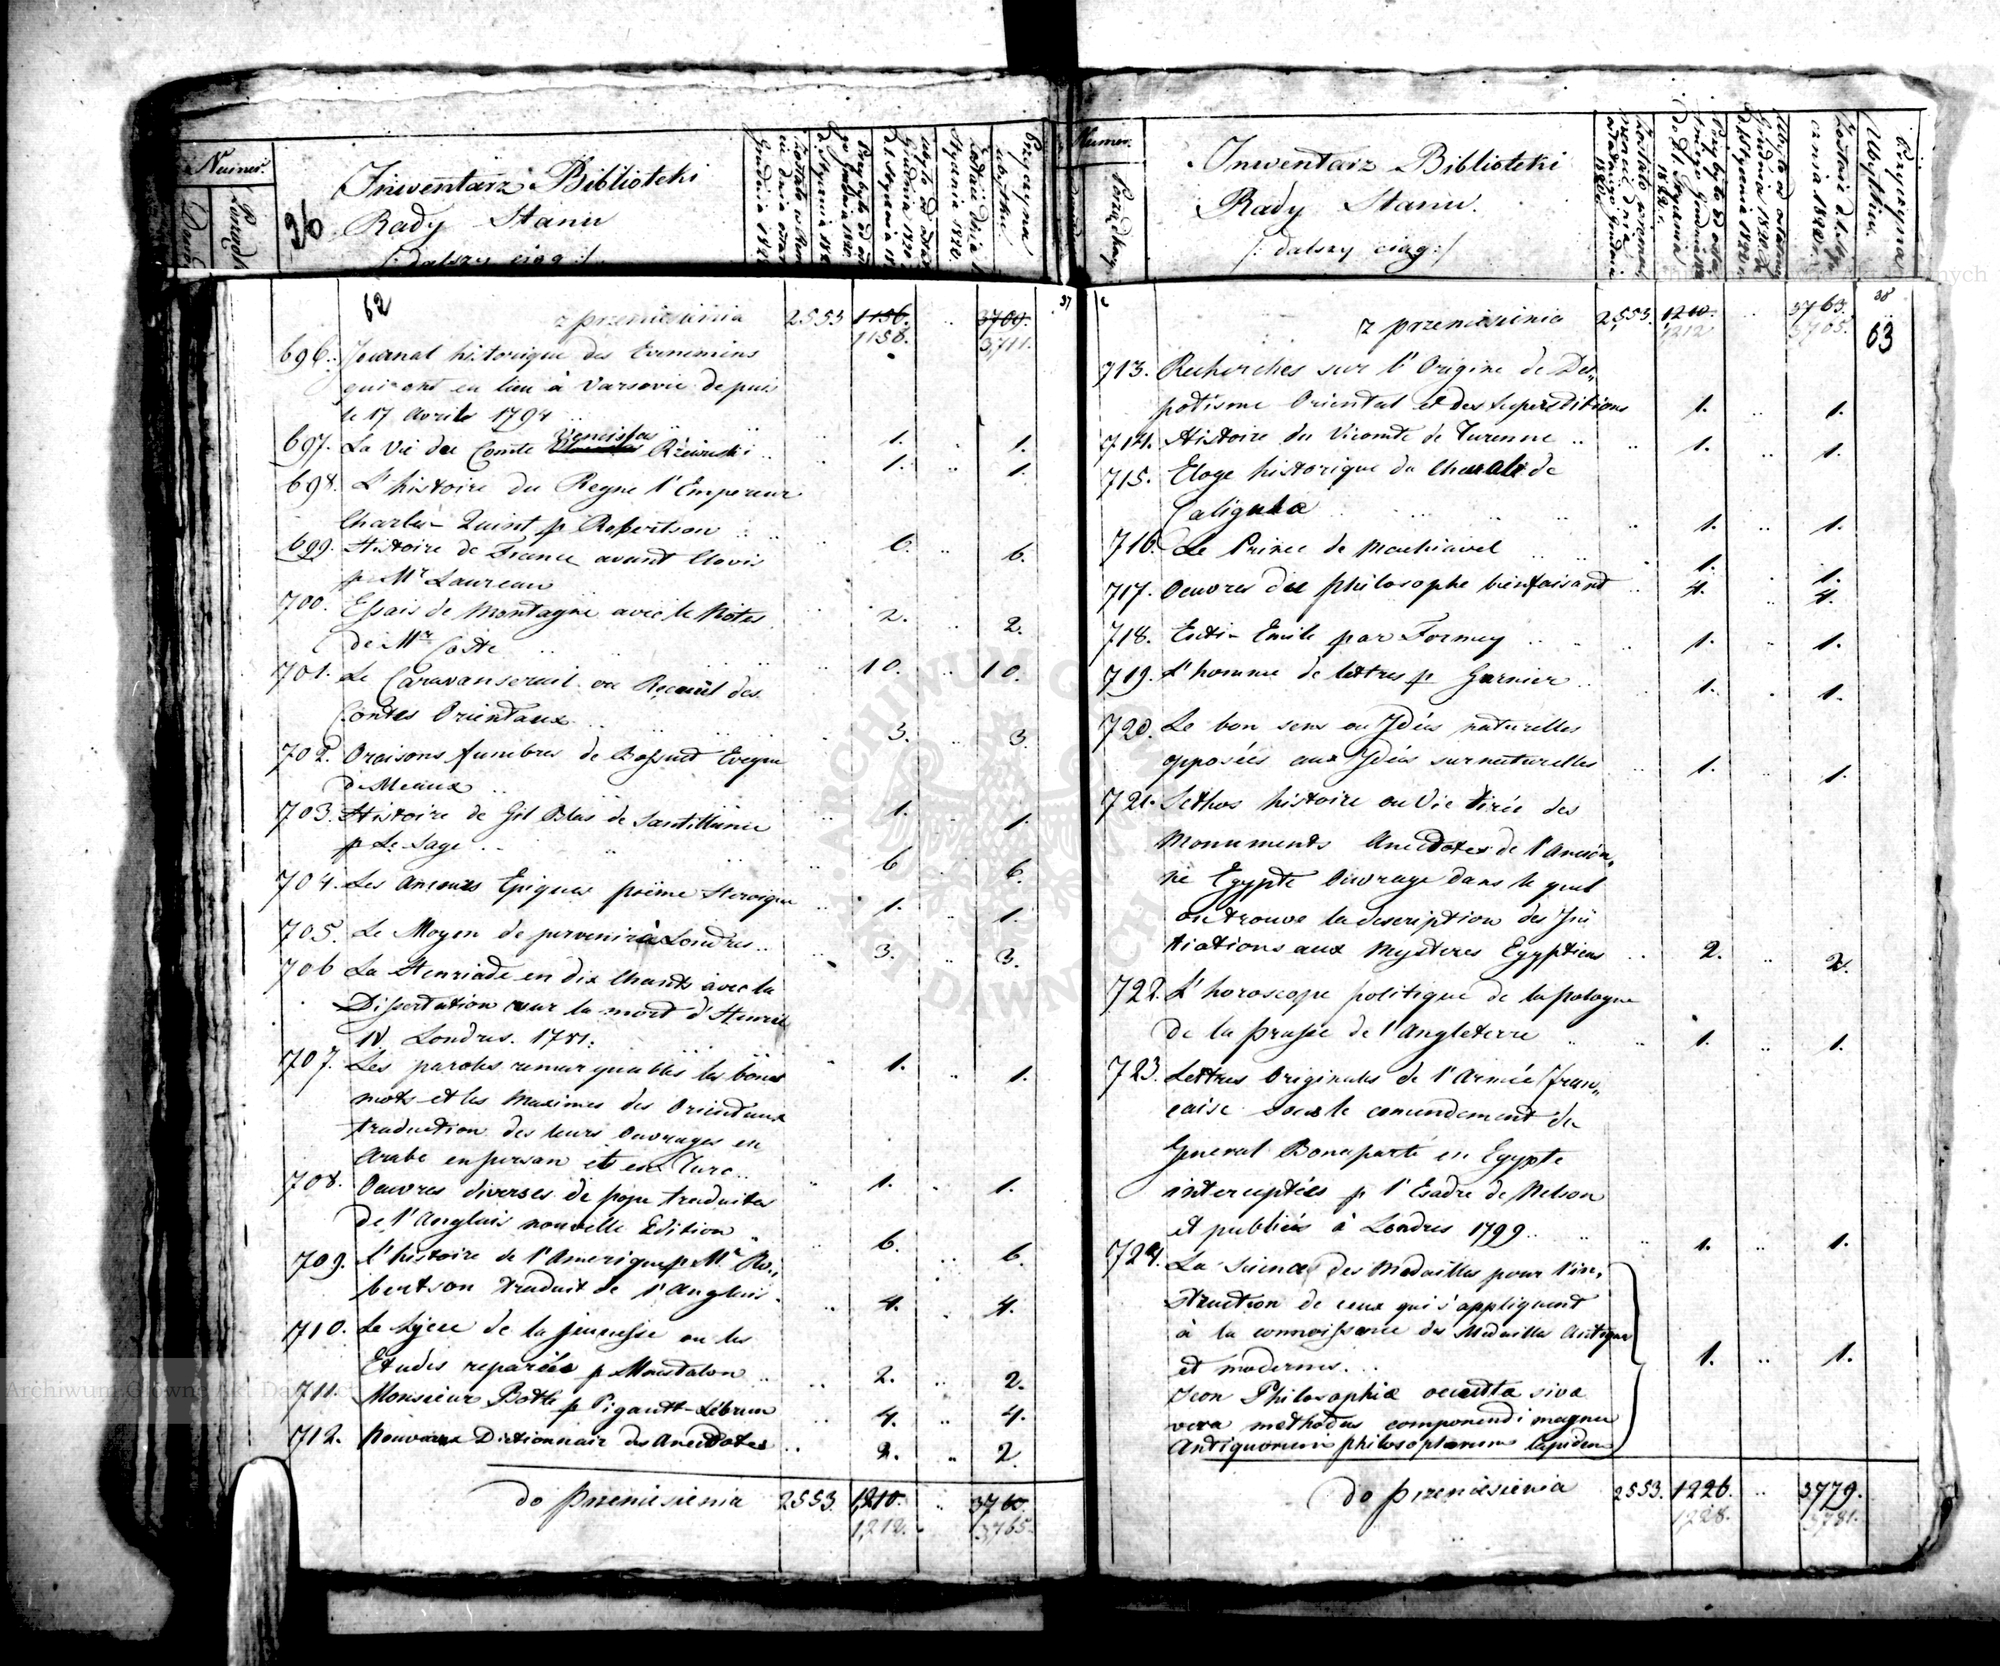 Numer.
Porządk.
36
Inwentarz Biblioteki
Rady Stanu
/: dalszy ciąg :/
Przyczyna
ubytku
62
37
z przeniesienia 2553 1156. .. 3709.
1158. 3,711.
696. Journal historique des Evenemens
qui ont eu lieu à Varsovie depuis
le 17 Avrile 1794 .. 1. .. 1.
697. La Vie du Comte Venceslas Rzewuski .. 1. .. 1.
698. L'histoire du Regne l'Empereur
Charles-Quint p Robertson .. 6. .. 6.
699. Histoire de France avant Clovis
p Mr Laureau .. 2. .. 2.
700. Essais de Montagne avec le Notes
de Mr Coste .. 10. .. 10.
701. Le Caravanserail ou Recueil des
Contes Orientaux .. 3. .. 3.
702. Oraisons funebres de Bossuet Eveque
de Meaux .. 1. .. 1.
703. Histoire de Gil Blas de Santillanne
p Le Sage .. 6 .. 6.
704. Les Amours Epiques poëme Heroique .. 1. .. 1.
705. Le Moyen de parvenir à Londres .. 3. .. 3.
706 La Henriade en dix Chants avec la
Dissertation sur la mort d'Henri
IV Londres. 1751. .. 1. .. 1.
707. Les paroles remarquables les bons
mots et les Maximes des Orientaux
traduction des leurs Ouvrages en
Arabe en persan et en Turc .. 1. .. 1.
708. Oeuvres diverses de pope traduites
de l'Anglais nouvelle Edition .. 6. .. 6.
709. L'histoire de l'Amerique p Mr Ro„
bertson traduit de l'Anglais .. 4. .. 4.
710. Le Lycee de la jeunesse ou les
Etudes reparées p Moustalon .. 2. .. 2.
711. Monsieur Botte p Pigault-Lebrun .. 4. .. 4.
712. Nouveau Dictionnaire des Anecdotes .. 2. .. 2.
do przeniesienia 2553. 1,210. .. 3760.
1,212. 3,765.
Numer.
Porządkowy
Inwentarz Biblioteki
Rady Stanu.
/: dalszy ciąg :/
Przyczyna
Ubytku.
38
63
z przeniesienia 2,553. 1210. .. 3763.
1,212 3,765.
713. Recherches sur l'Origine de Des„
potisme Oriental et des Superstitions 1. 1.
714. Histoire du Vicomte de Turenne .. 1. .. 1.
715. Eloge historique du Chevale de
Caligula .. 1. .. 1.
716. Le Prince de Machiavel .. 1. .. 1.
717. Oeuvres du philosophe bienfaisant .. 4. .. 4.
718. Enti-Emile par Formey .. 1. .. 1.
719. L'homme de lettres p Garnier .. 1. .. 1.
720. Le bon sens ou Idées naturelles
opposées aux Idées surnaturelles .. 1. .. 1.
721. Sethos histoire ou Vie tirée des
Monuments Anecdotes de l'Ancien„
ne Egypte Ouvrage dans le quel
on trouve la description des Ini
tiations aux Mysteres Egyptiens .. 2. .. 2.
722. L'horoscope politique de la pologne
de la prusse de l'Angleterre .. 1. .. 1.
723. Lettres Originales de l'Armée fran„
caise sous le comendement du
General Bonaparte en Egypte
interceptées p l'Esadre de Nelson
et publiées à Londres 1799. .. 1. .. 1.
724. La Science des Medailles pour l'in„
struction de ceux qui s'appliquent
à la connoissance des Medailles Antiques
et modernes. .. 1. .. 1.
Icon Philosophiæ occultæ sive
vera methodus componendi magnum
Antiquorum philosophorum lapidem
do przeniesienia 2553. 1226. .. 3779.
1,228. 3,781.
Archiwum Główne Akt Dawnych
ARCHIWUM GŁÓWNE AKT DAWNYCH